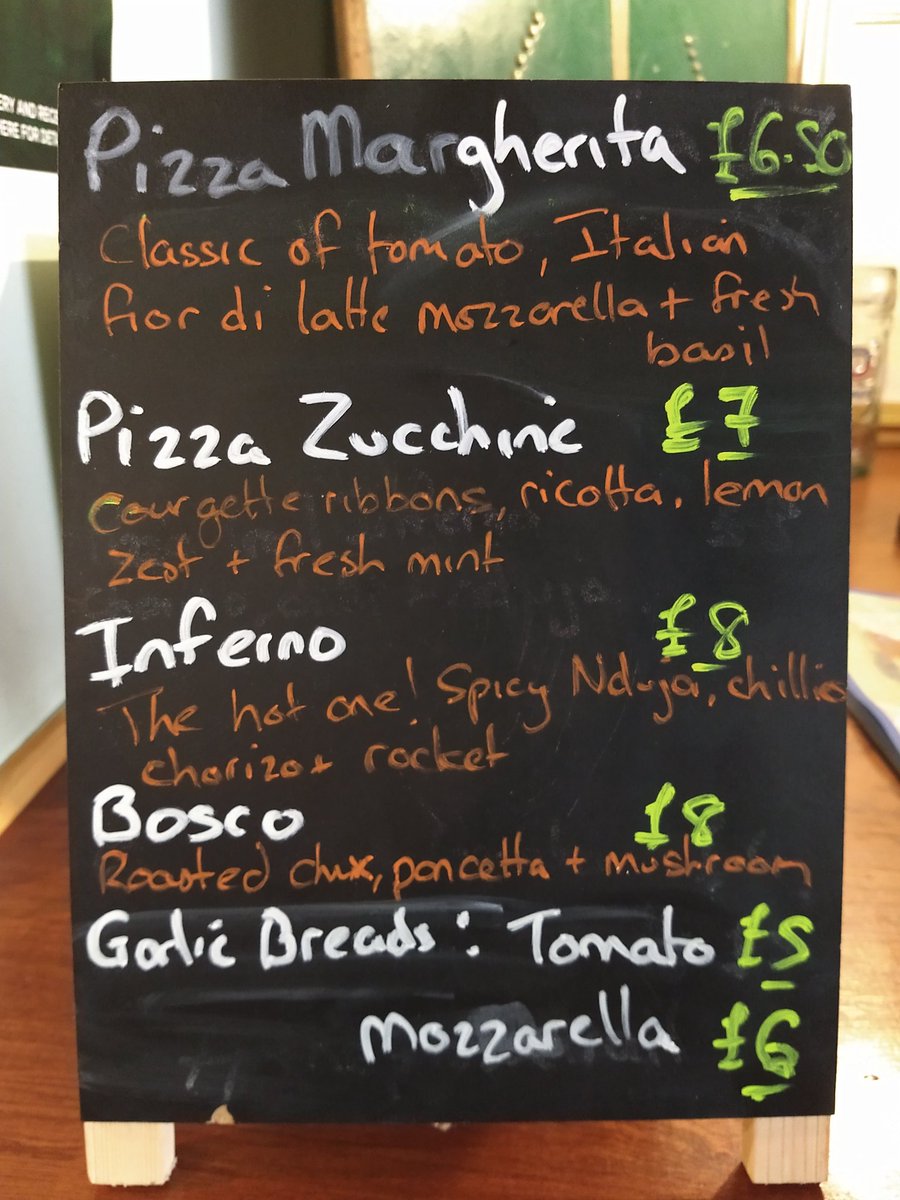 ERY AND RECE
HERE FOR DET
Pizza Margherita £6.50
Classic of tomato, Italian
fior di latte mozzarella + fresh
basil
Pizza Zucchine £7
Courgette ribbons, ricotta, lemon
zest + fresh mint
Inferno £8
The hot one! Spicy Nduja, chillies
chorizo + rocket
Bosco £8
Roasted chux, pancetta + mushroom
Garlic Breads: Tomato £5
Mozzarella £6